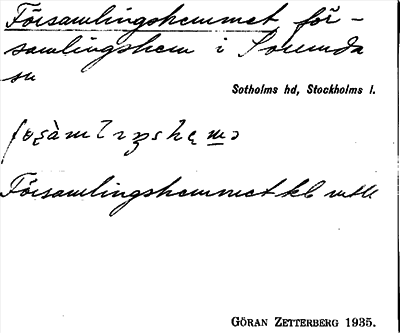 Församlingshemmet för-
samlingshem i Sorunda
sn
Sotholms hd, Stockholms l.
Församlingshemmet kl
GÖRAN ZETTERBERG 1935.